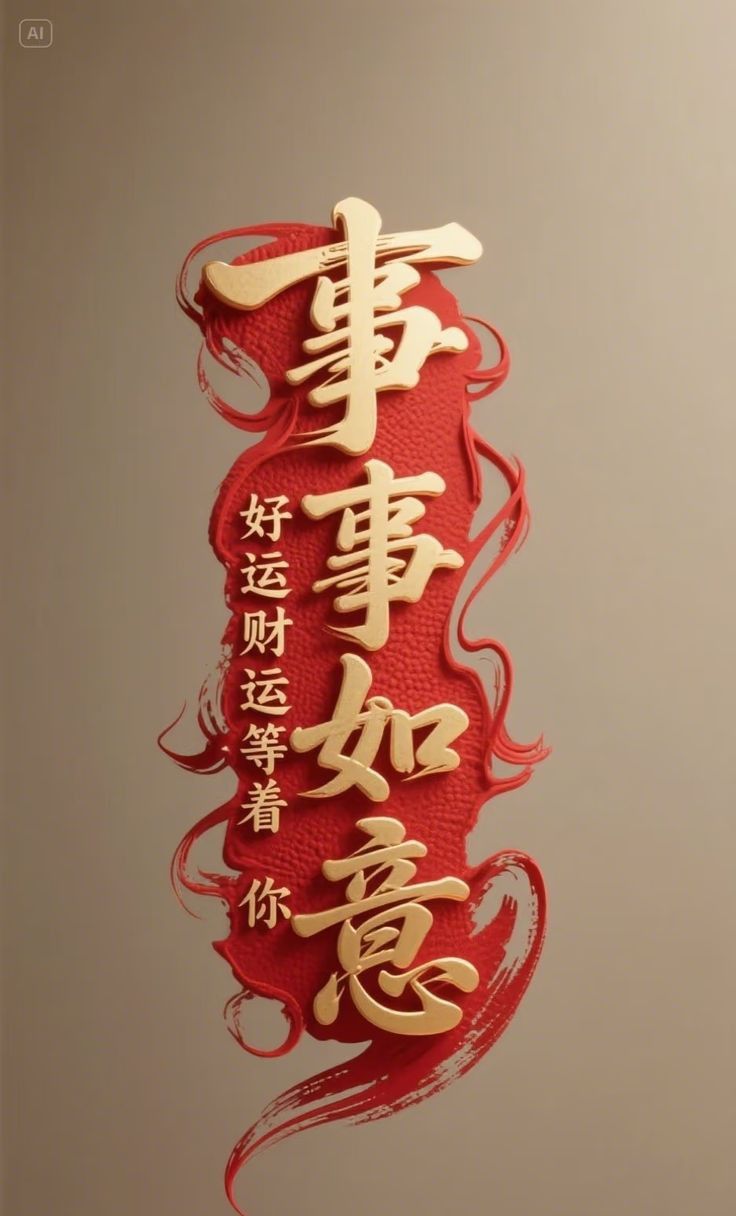 AI
事事如意
好运财运等着 你